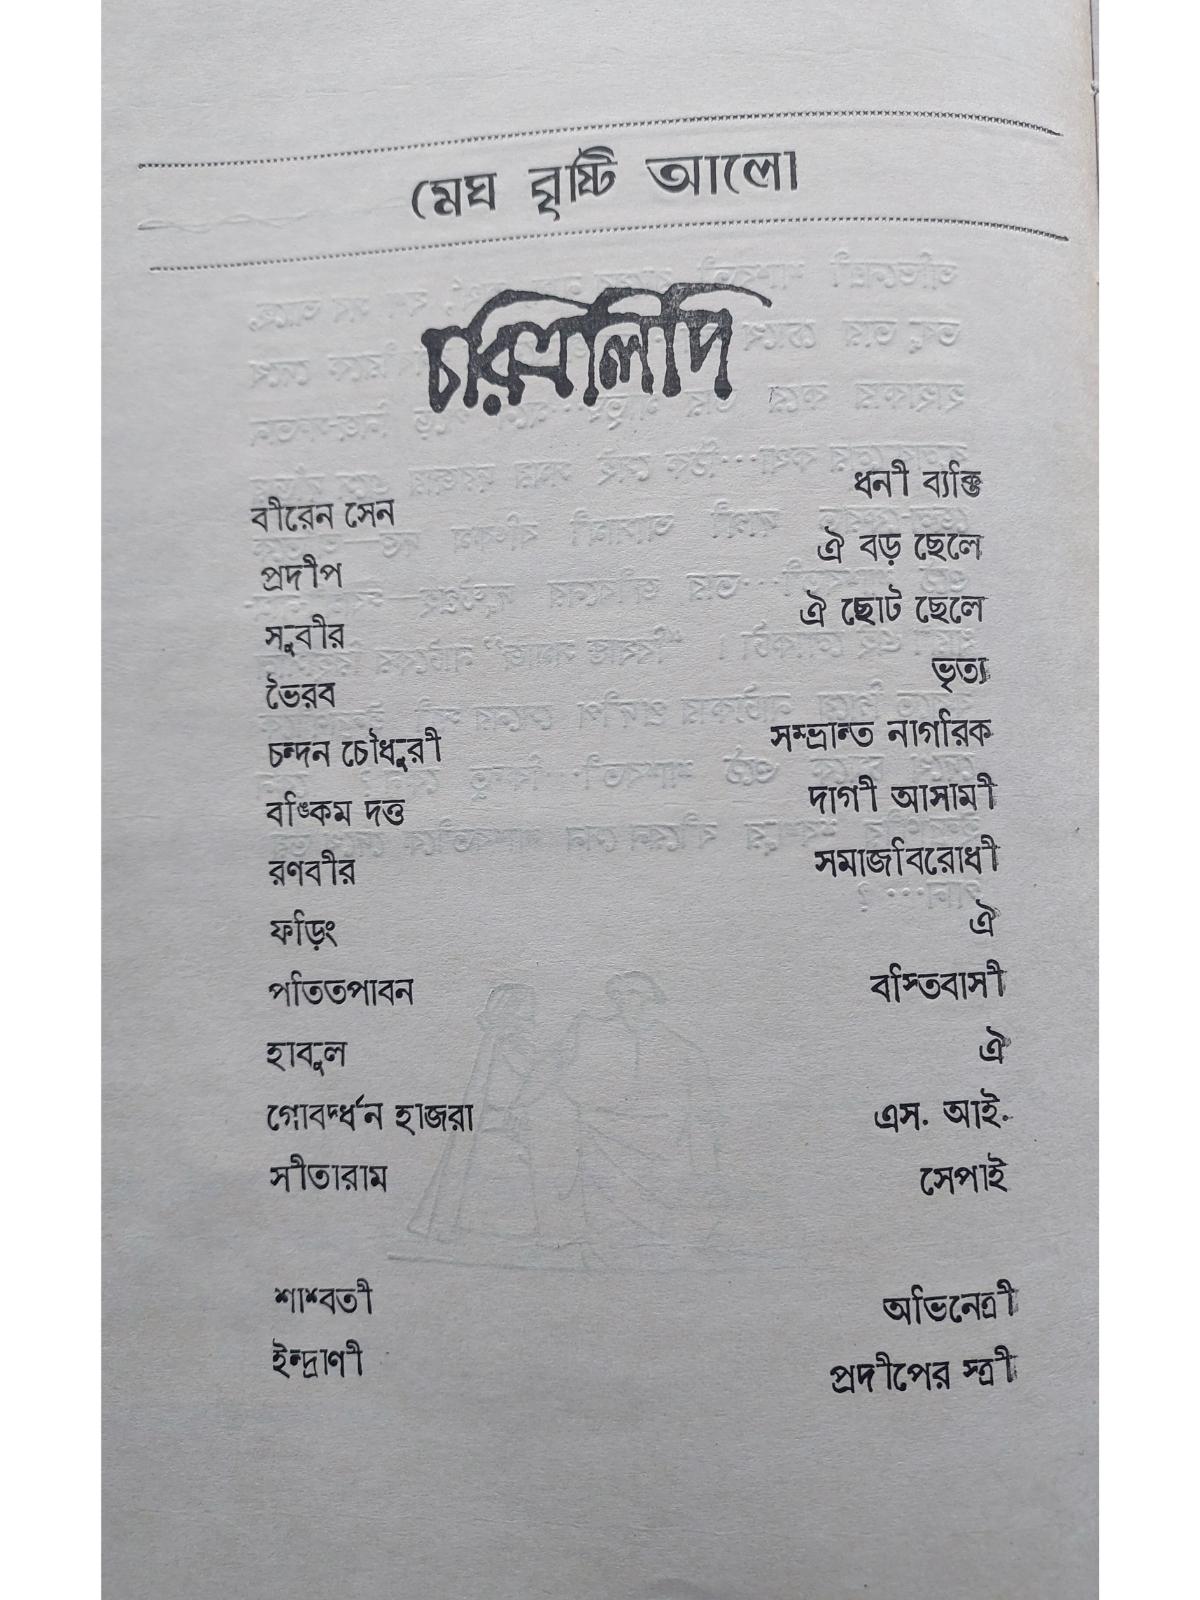 মেঘ বৃষ্টি আলো
চরিত্রলিপি
বীরেন সেন ধনী ব্যক্তি
প্রদীপ ঐ বড় ছেলে
সুবীর ঐ ছোট ছেলে
ভৈরব ভৃত্য
চন্দন চৌধুরী সম্ভ্রান্ত নাগরিক
বঙ্কিম দত্ত দাগী আসামী
রণবীর সমাজবিরোধী
ফড়িং ঐ
পতিতপাবন বস্তিবাসী
হাবুল ঐ
গোবর্দ্ধন হাজরা এস. আই.
সীতারাম সেপাই
শাশ্বতী অভিনেত্রী
ইন্দ্রাণী প্রদীপের স্ত্রী